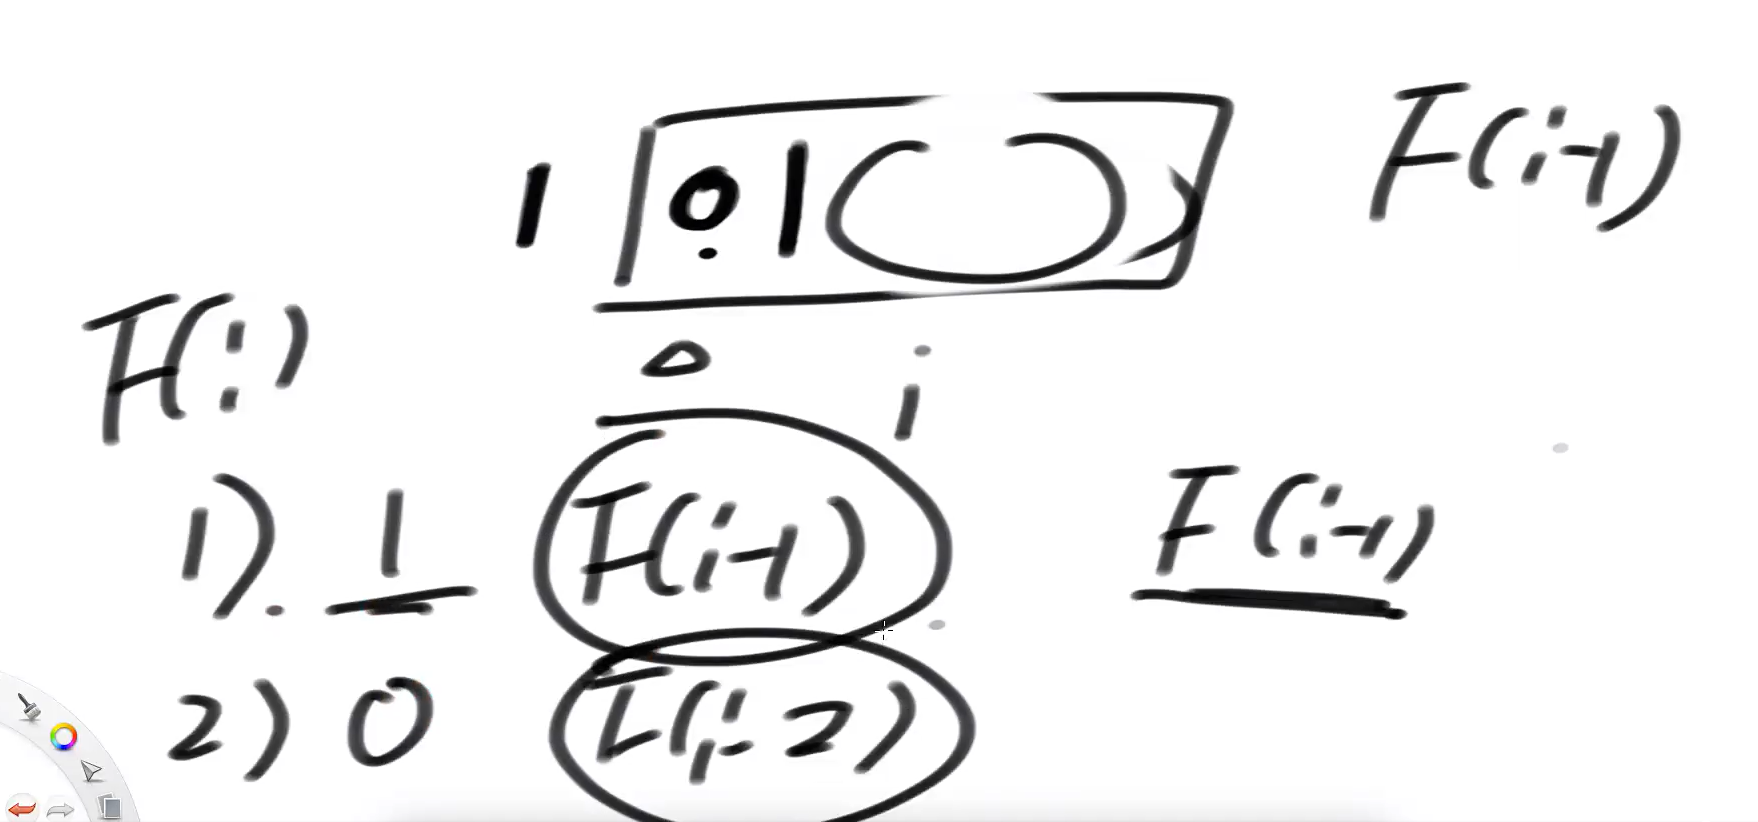 1 | 0 1 F(i-1)
F(i) 0 i
1). 1 F(i-1) F(i-1)
2) 0 F(i-2)